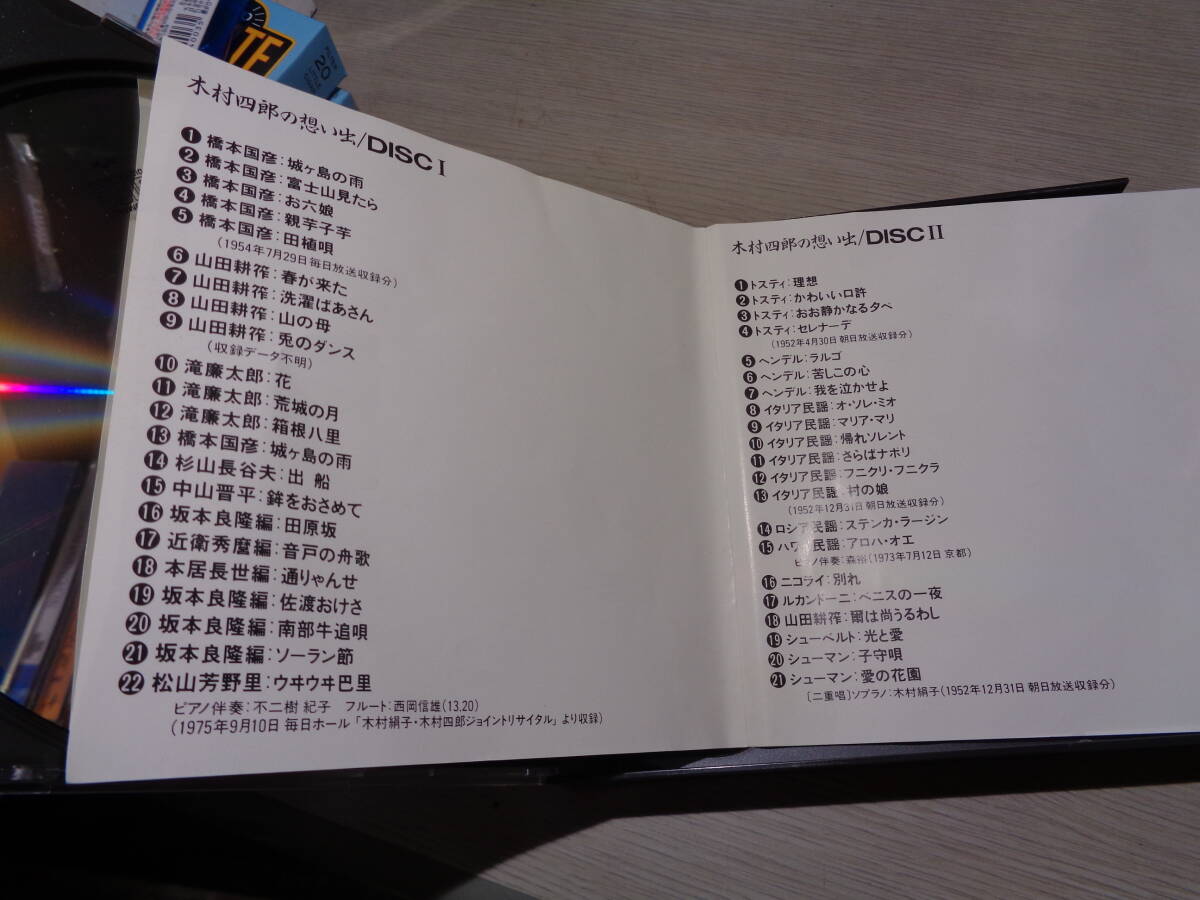 木村四郎の想い出/DISC I
❶橋本国彦:城ヶ島の雨
❷橋本国彦:富士山見たら
❸橋本国彦:お六娘
❹橋本国彦:親芋子芋
❺橋本国彦:田植唄
(1954年7月29日毎日放送収録分)
❻山田耕筰:春が来た
❼山田耕筰:洗濯ばあさん
❽山田耕筰:山の母
❾山田耕筰:兎のダンス
(収録データ不明)
❿滝廉太郎:花
⓫滝廉太郎:荒城の月
⓬滝廉太郎:箱根八里
⓭橋本国彦:城ヶ島の雨
⓮杉山長谷夫:出 船
⓯中山晋平:鉾をおさめて
⓰坂本良隆編:田原坂
⓱近衛秀麿編:音戸の舟歌
⓲本居長世編:通りゃんせ
⓳坂本良隆編:佐渡おけさ
⓴坂本良隆編:南部牛追唄
㉑坂本良隆編:ソーラン節
㉒松山芳野里:ウヰウヰ巴里
ピアノ伴奏:不二樹 紀子 フルート:西岡信雄(13.20)
(1975年9月10日 毎日ホール「木村絹子・木村四郎ジョイントリサイタル」より収録)
木村四郎の想い出/DISC II
❶トスティ:理想
❷トスティ:かわいい口許
❸トスティ:おお静かなる夕べ
❹トスティ:セレナーデ
(1952年4月30日 朝日放送収録分)
❺ヘンデル:ラルゴ
❻ヘンデル:苦しこの心
❼ヘンデル:我を泣かせよ
❽イタリア民謡:オ・ソレ・ミオ
❾イタリア民謡:マリア・マリ
❿イタリア民謡:帰れソレント
⓫イタリア民謡:さらばナポリ
⓬イタリア民謡:フニクリ・フニクラ
⓭イタリア民謡:村の娘
(1952年12月31日 朝日放送収録分)
⓮ロシア民謡:ステンカ・ラージン
⓯ハワイ民謡:アロハ・オエ
ピアノ伴奏:森裕(1973年7月12日 京都)
⓰ニコライ:別れ
⓱ルカンドーニ:ベニスの一夜
⓲山田耕筰:爾は尚うるわし
⓳シューベルト:光と愛
⓴シューマン:子守唄
㉑シューマン:愛の花園
〔二重唱〕ソプラノ:木村絹子(1952年12月31日 朝日放送収録分)
20